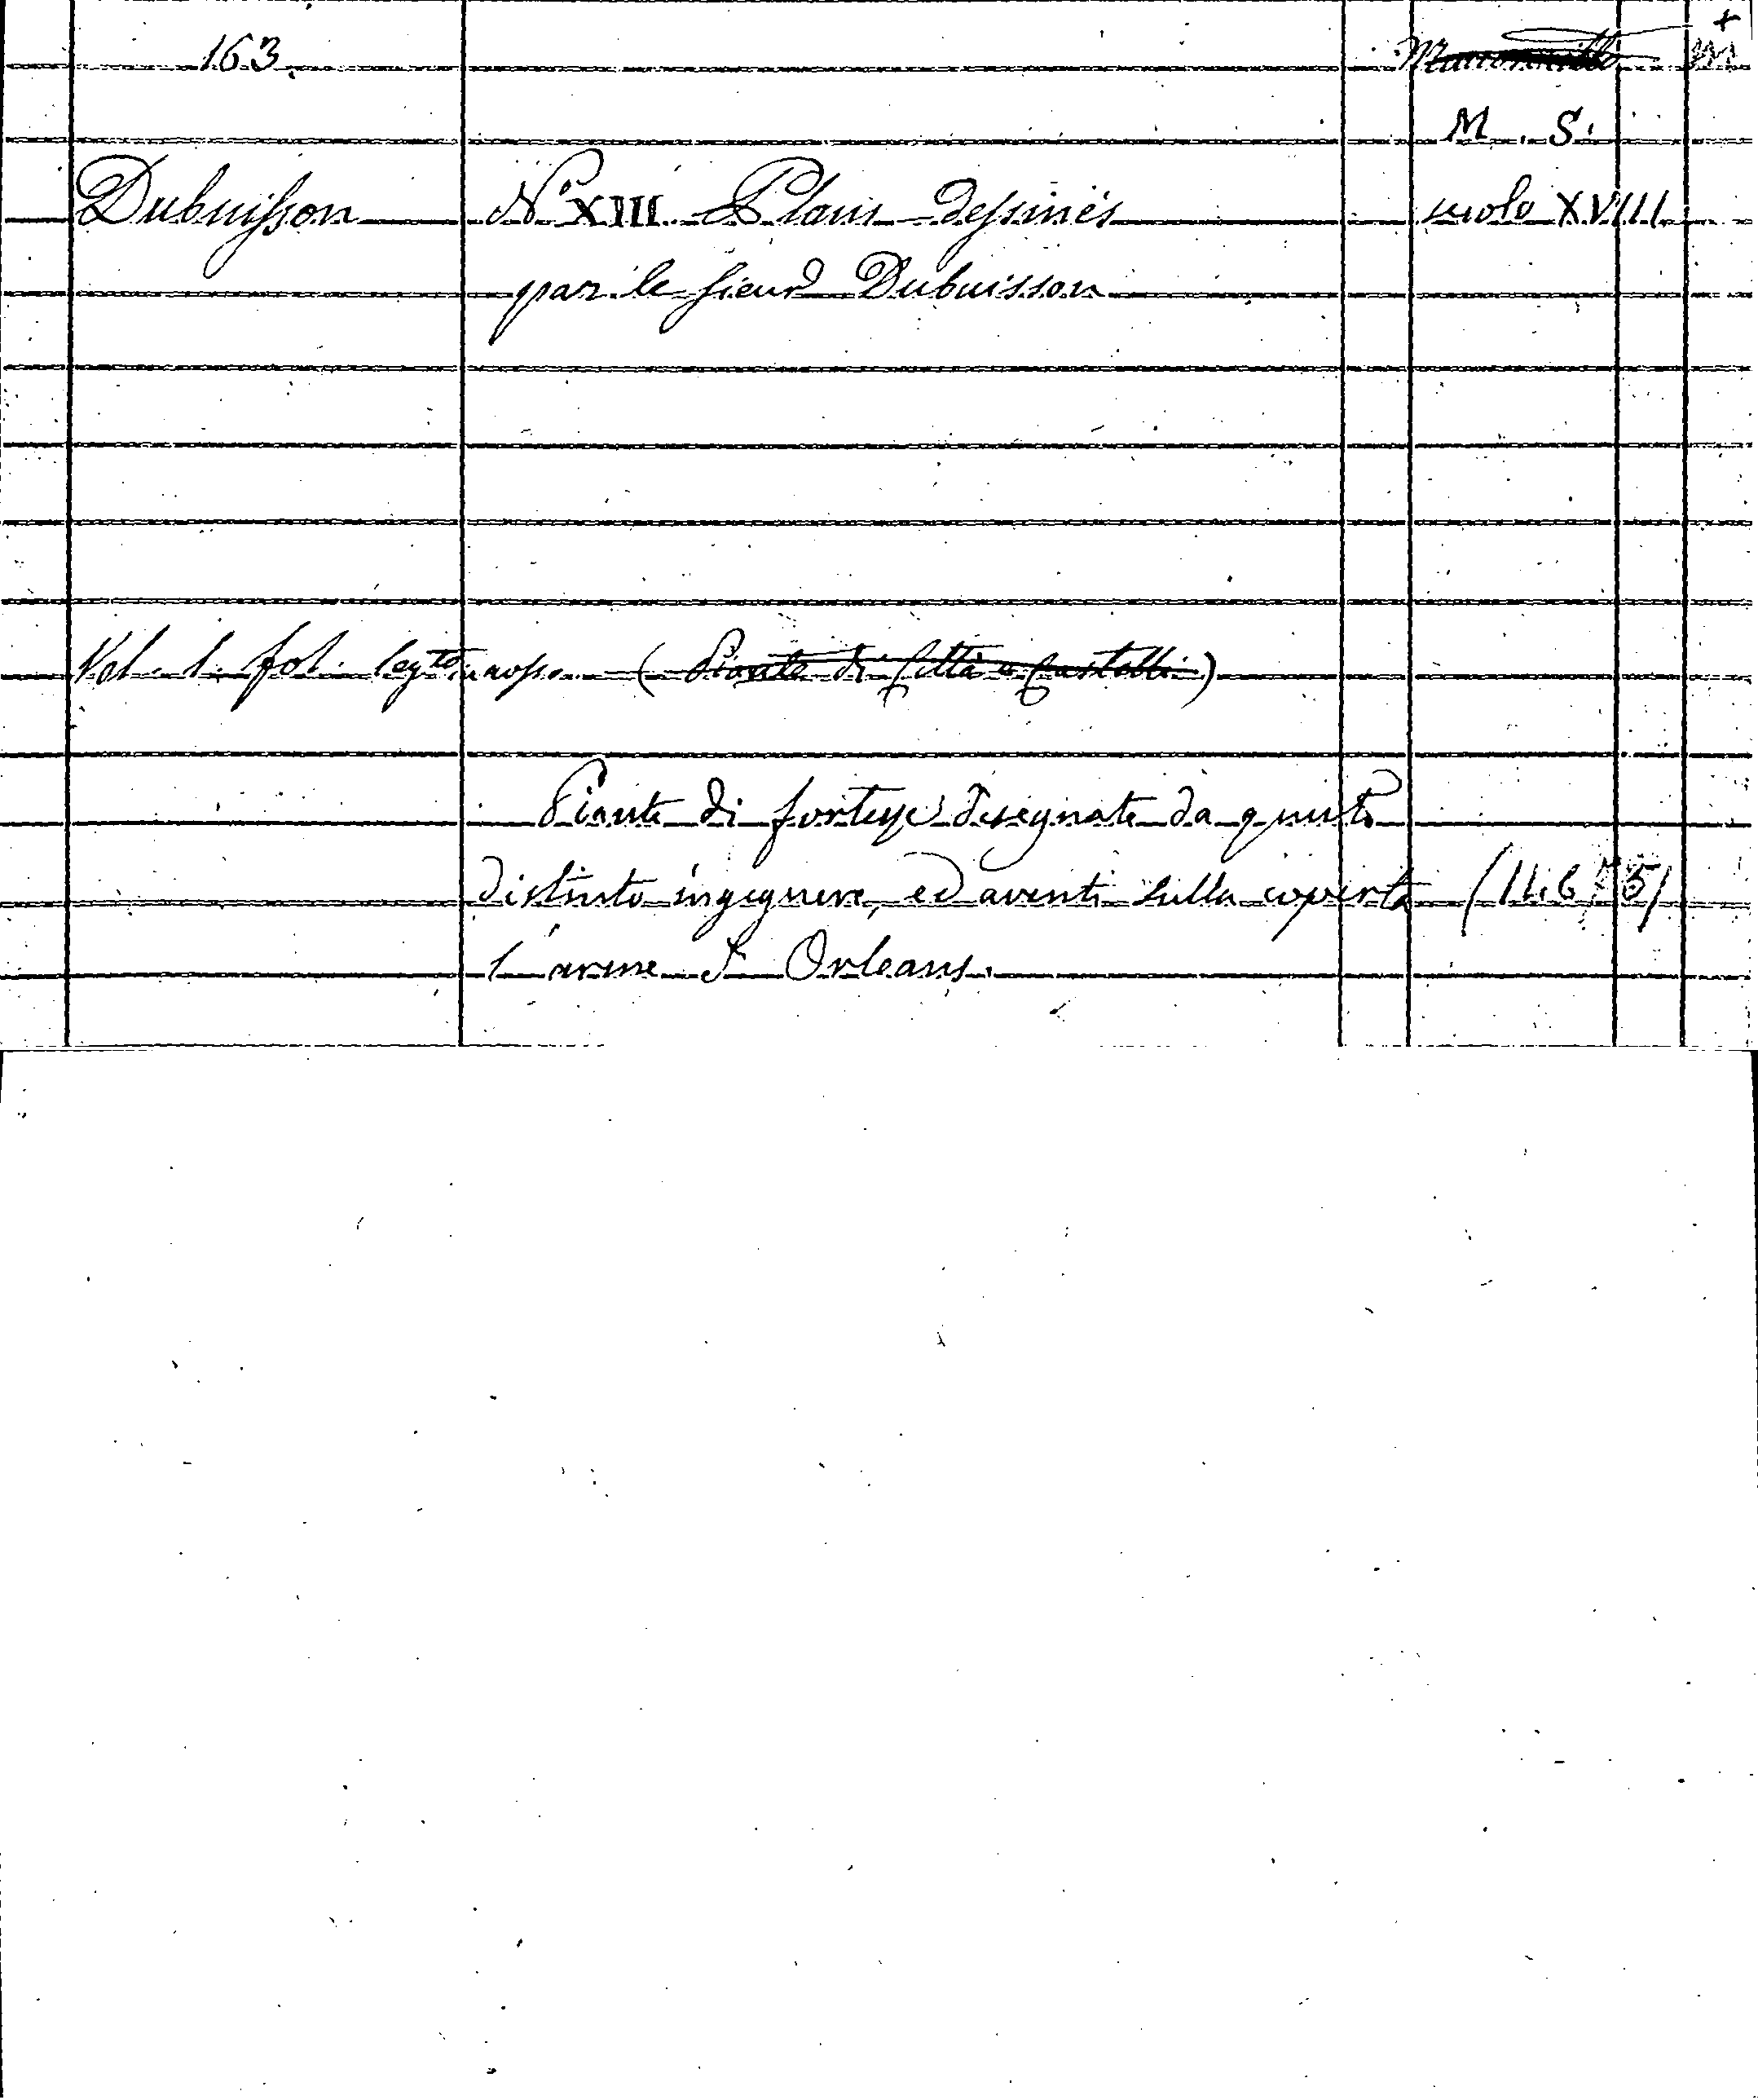 163. M
M. S.
Dubuisson N.º XIII Plans dessinés secolo XVIII
par le Sieur Dubuisson
Vol. 1. fol. leg.to in rosso (Piante di Città e Castelli)
Piante di fortezze disegnate da questo
distinto ingegnere, ed aventi sulla coperta
l'arme d'Orleans.